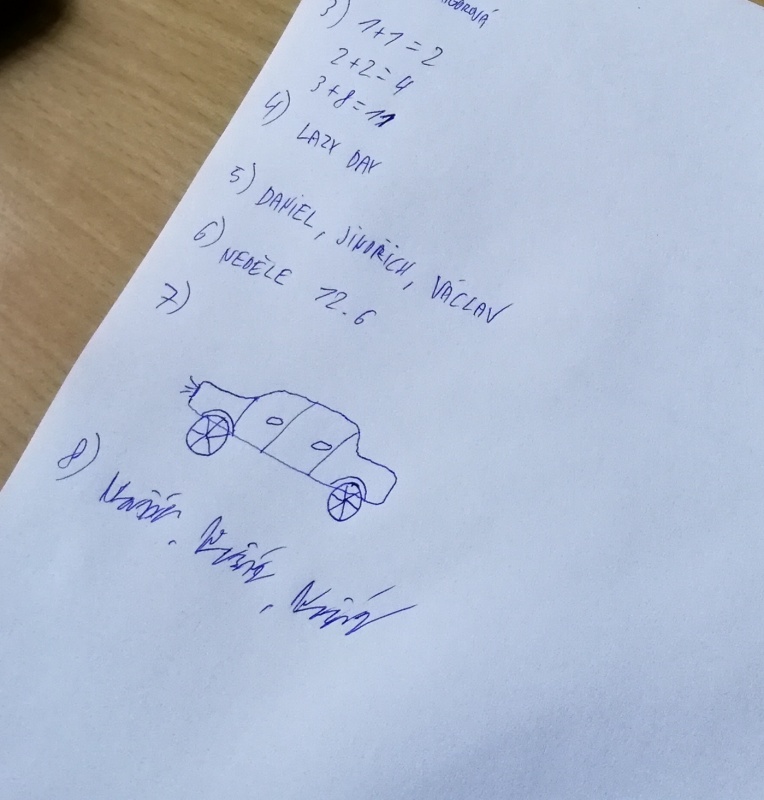 3) 1+1=2
2+2=4
3+8=11
4) LAZY DAY
5) DANIEL, JINDŘICH, VÁCLAV
6) NEDĚLE 12.6
7)
8)